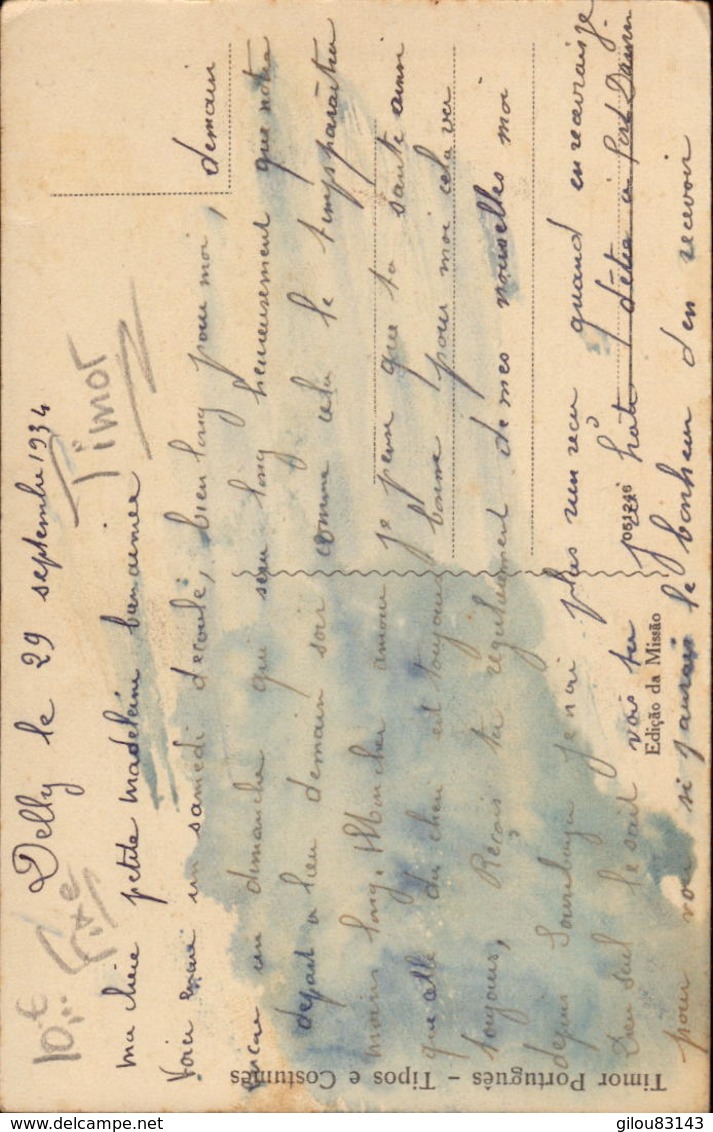 Delly le 29 septembre 1934
ma chère petite madeleine bien aimée
Voici encore un samedi decoulé, bien long pour moi, demain
encore un dimanche qui sera long heureusement que notre
depart a lieu demain soir comme cela le temps paraitra
moins long. Mon cher amour je pense que ta santé ainsi
que celle du cheri est toujours bonne pour moi cela va
toujours, Reçois tu regulierement de mes nouvelles moi
depuis Sourabaya je n'ai plus rien recu quand en recevrai je
Dieu seul le sait vois tu j'ai hâte d'être a Port Darwin
pour voir si j'aurai le bonheur d'en recevoir
10,.. €
Fixe
Timor
Timor Português - Tipos e Costumes
Edição da Missão
051246
delcampe.net
gilou83143